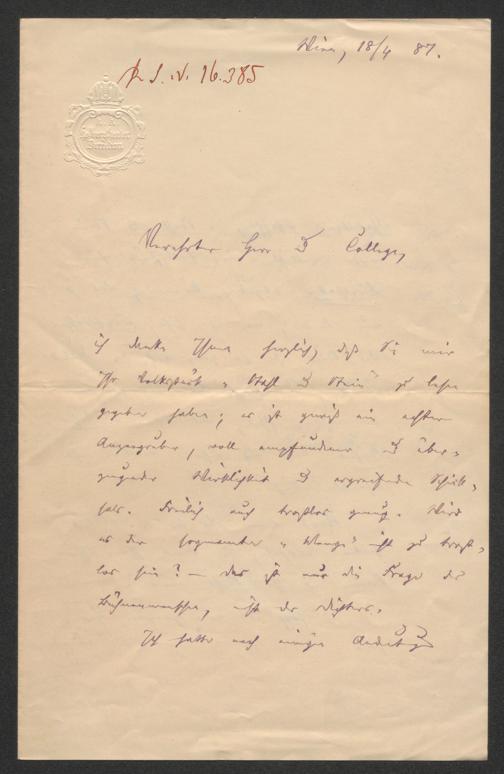 Wien, 18/4 87.
I. N. 16.385
Verehrter Herr & College,
ich danke Ihnen herzlich, daß Sie mir
Ihr Volksstück „Stahl & Stein" zu lesen
gegeben haben; es ist gewiß ein echter
Anzengruber, voll empfundener & über-
zeugender Wirklichkeit & ergreifender Schick-
sale. Freilich auch trostlos genug. Wird
es der sogenannten „Menge" nicht zu trost-
los sein? — das ist nur die Frage des
Bühnenmenschen, nicht des Dichters.
Ich hatte nach einigen